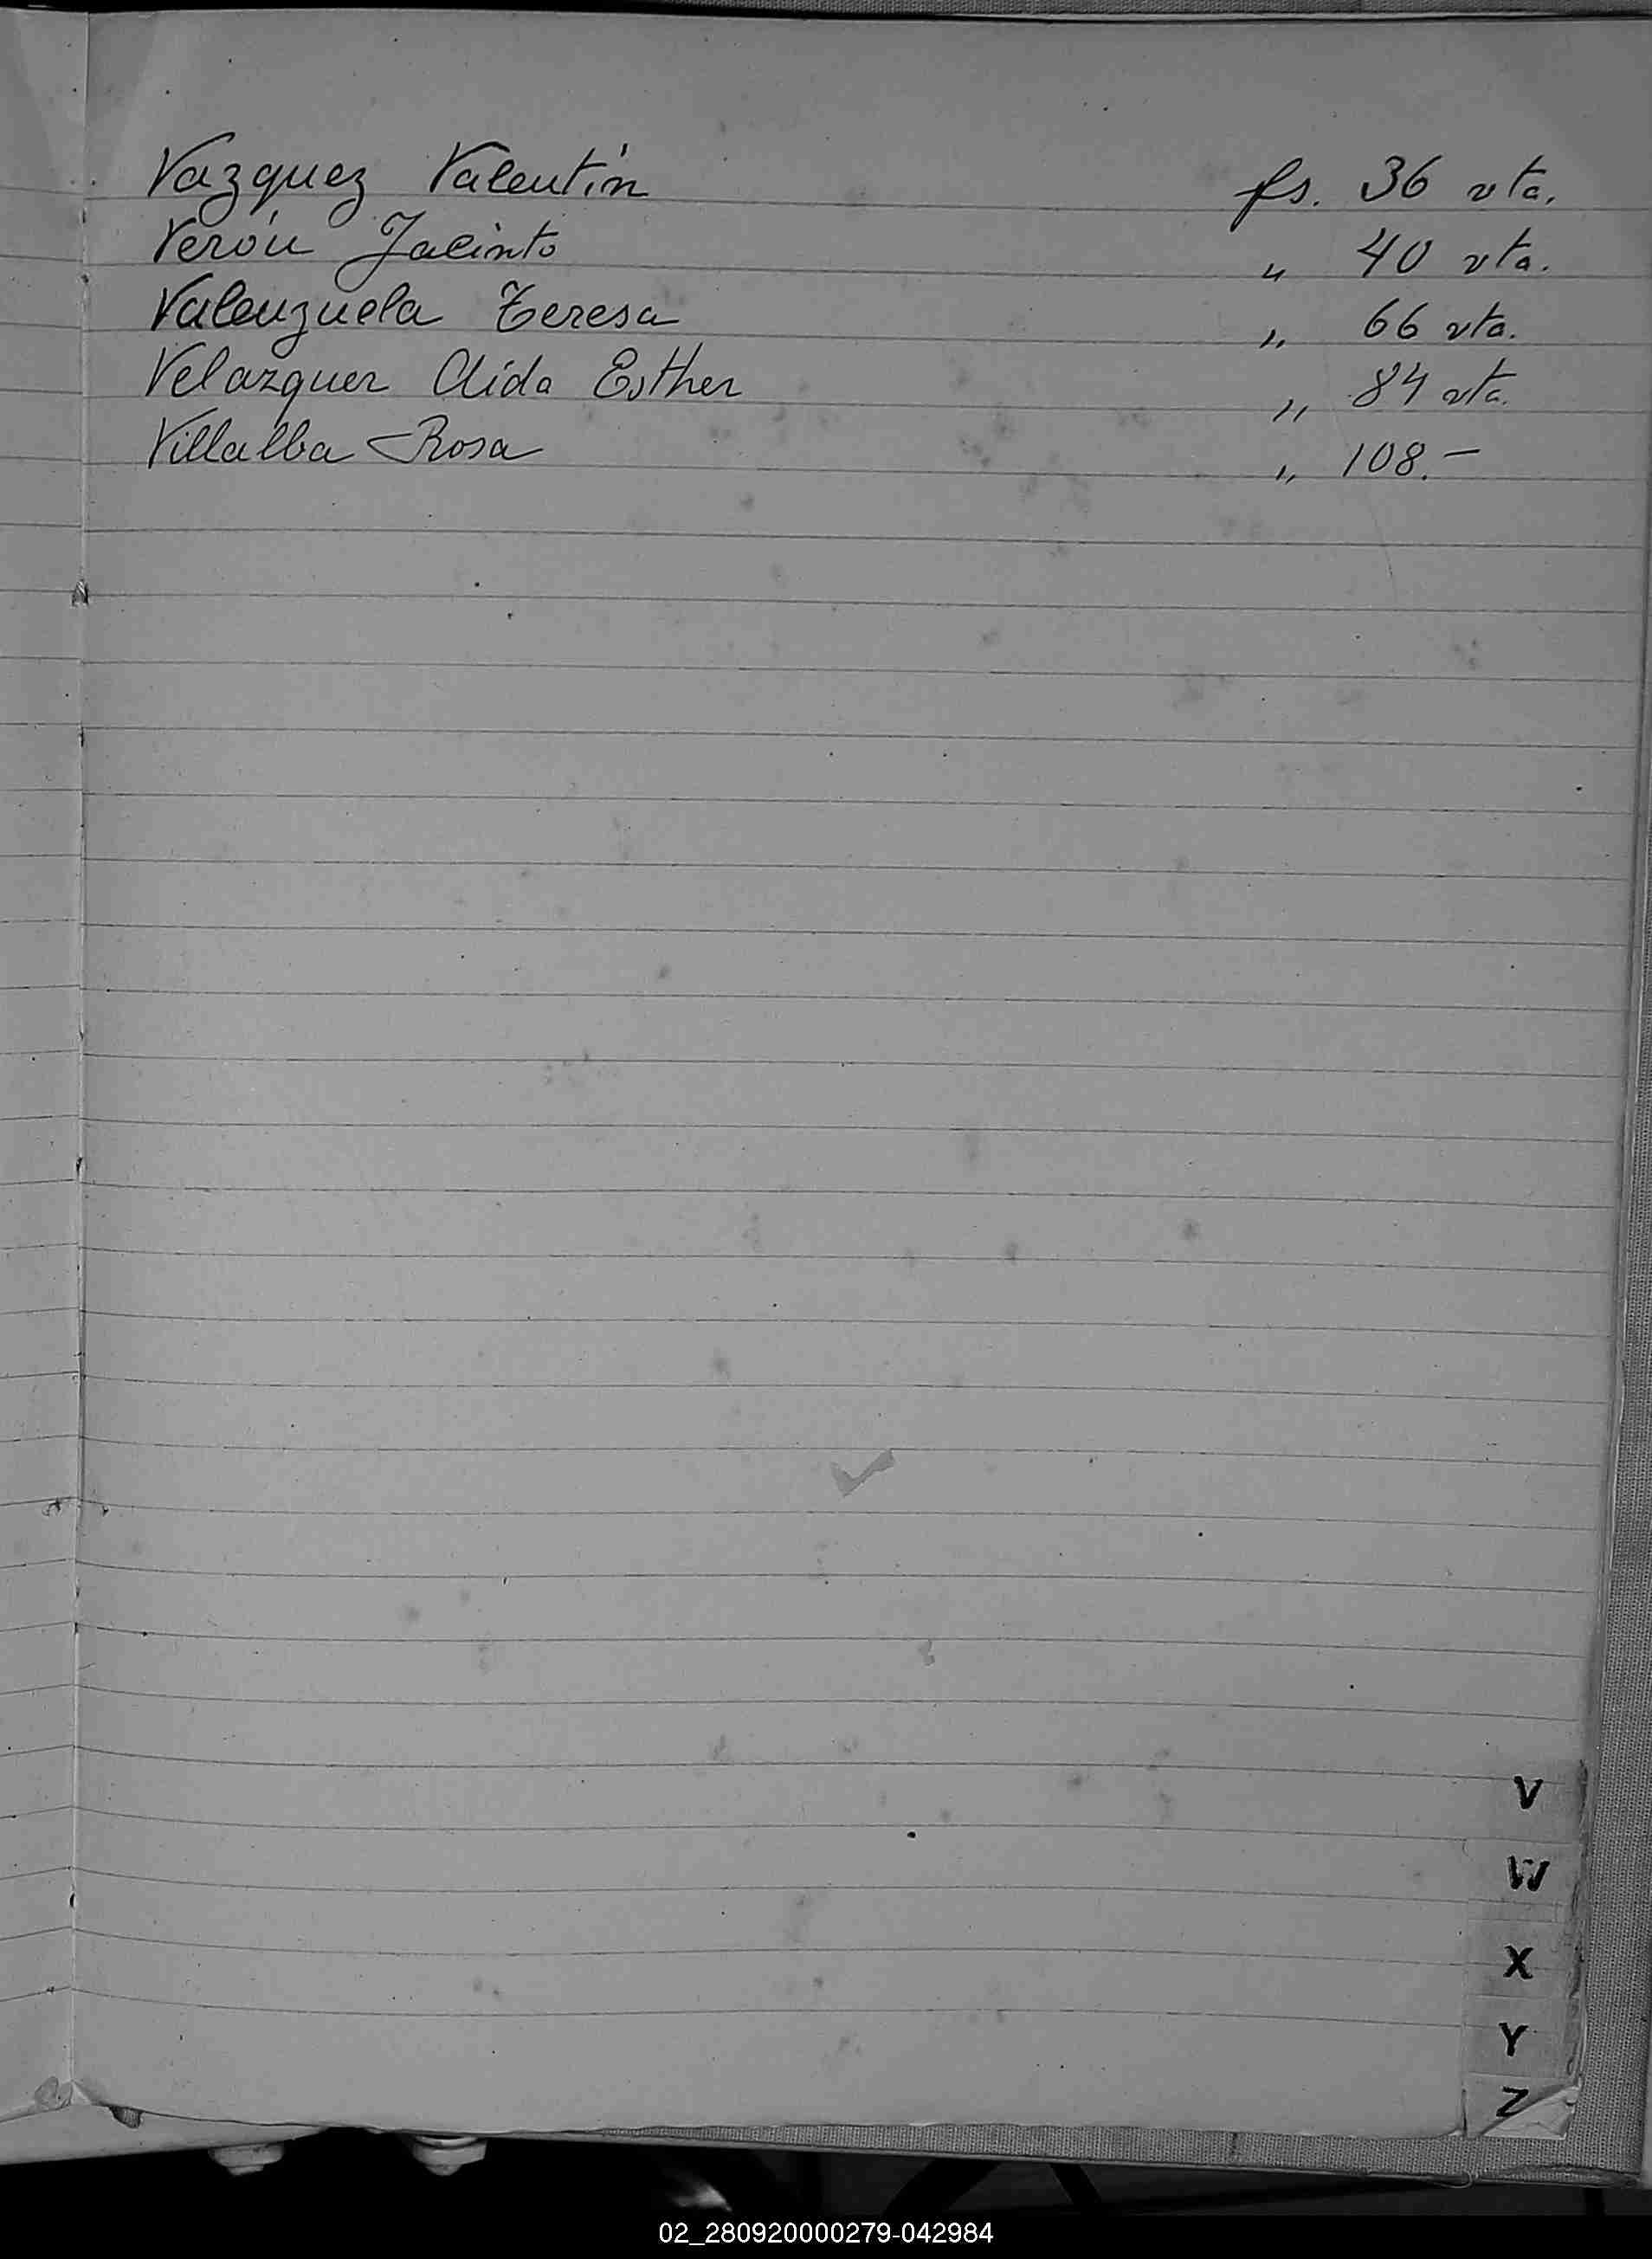 Vazquez Valentín fs. 36 vta.
Verón Jacinto " 40 vta.
Valenzuela Teresa " 66 vta.
Velazquez Aída Esther " 84 vta.
Villalba Rosa " 108.-
V
W
X
Y
Z
02_280920000279-042984